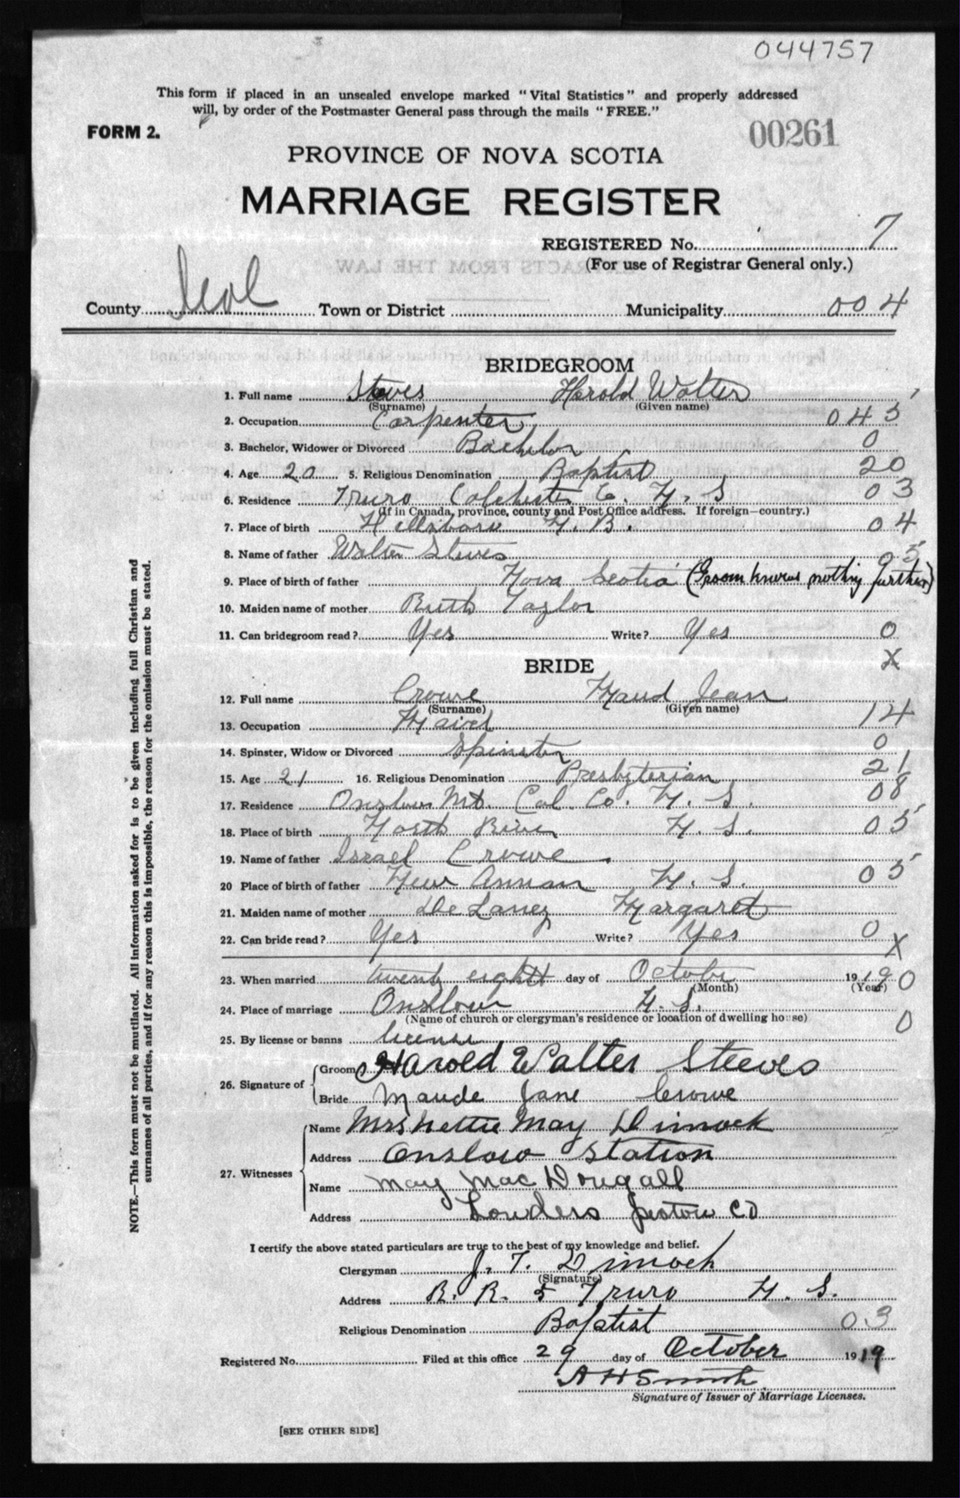 044757
This form if placed in an unsealed envelope marked "Vital Statistics" and properly addressed
will, by order of the Postmaster General pass through the mails "FREE."
FORM 2.
00261
PROVINCE OF NOVA SCOTIA
MARRIAGE REGISTER
REGISTERED No. 7
(For use of Registrar General only.)
County Col Town or District Municipality 004
BRIDEGROOM
1. Full name Steves Harold Walter
(Surname) (Given name)
2. Occupation Carpenter 045
3. Bachelor, Widower or Divorced Bachelor 0
4. Age 20 5. Religious Denomination Baptist 20
6. Residence Truro Colchester C. N. S 03
(If in Canada, province, county and Post Office address. If foreign—country.)
7. Place of birth Hillsboro N. B. 04
8. Name of father Walter Steves 05
9. Place of birth of father Nova Scotia (Groom knows nothing further)
10. Maiden name of mother Ruth Taylor
11. Can bridegroom read? Yes Write? Yes 0
X
BRIDE
12. Full name Crowe Maud Jean
(Surname) (Given name)
13. Occupation Maid 14
14. Spinster, Widow or Divorced Spinster 0
15. Age 21 16. Religious Denomination Presbyterian 21
17. Residence Onslow Mt. Col. Co. N. S. 08
18. Place of birth North River N. S. 05
19. Name of father Israel Crowe
20 Place of birth of father New Annan N. S. 05
21. Maiden name of mother DeLaney Margaret
22. Can bride read? Yes Write? Yes 0
X
23. When married twenty eighth day of October 1919 0
(Month) (Year)
24. Place of marriage Onslow N. S.
(Name of church or clergyman's residence or location of dwelling house) 0
25. By license or banns license
26. Signature of Groom Harold Walter Steeves
Bride Maude Jane Crowe
27. Witnesses Name Mrs Nettie May Dimock
Address Onslow Station
Name May MacDougall
Address Louders
I certify the above stated particulars are true to the best of my knowledge and belief.
Clergyman J. T. Dimock
(Signature)
Address R. R. 5 Truro N. S.
Religious Denomination Baptist 03
Registered No. Filed at this office 29 day of October 1919
A H Smith
Signature of Issuer of Marriage Licenses.
[SEE OTHER SIDE]
NOTE.—This form must not be mutilated. All information asked for is to be given including full Christian and
surnames of all parties, and if for any reason this is impossible, the reason for the omission must be stated.